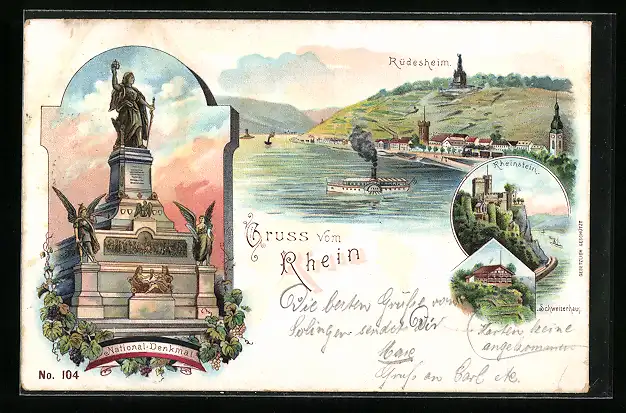 Rüdesheim.
Rheinstein.
Gruss vom
Rhein
Schweizerhaus
GESCHÜTZT
National-Denkmal
No. 104
Die besten Grüße von
Solingen sendet Dir
Max
Gruß an Carl etc.
Karten keine
angekommen